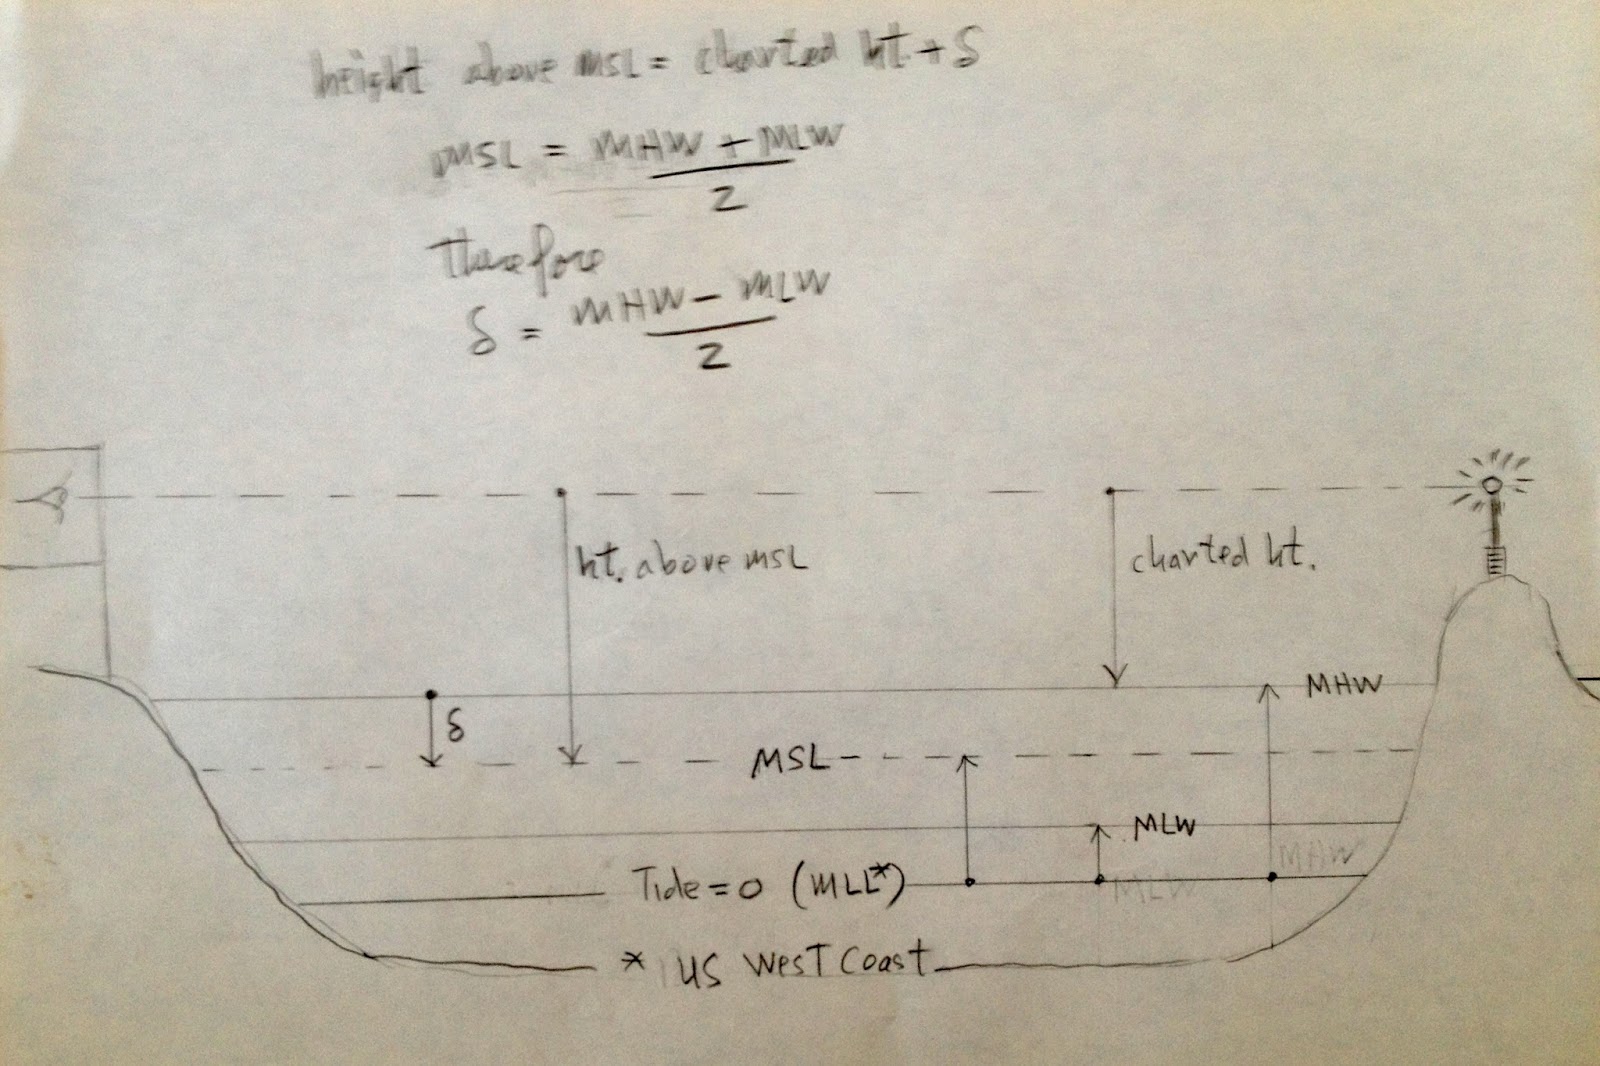 height above MSL = charted ht. + δ
MSL = MHW + MLW
2
therefore
δ = MHW - MLW
2
ht. above MSL
charted ht.
MHW
δ
MSL
MLW
MHW
Tide = 0 (MLL*)
MLW
* US West Coast